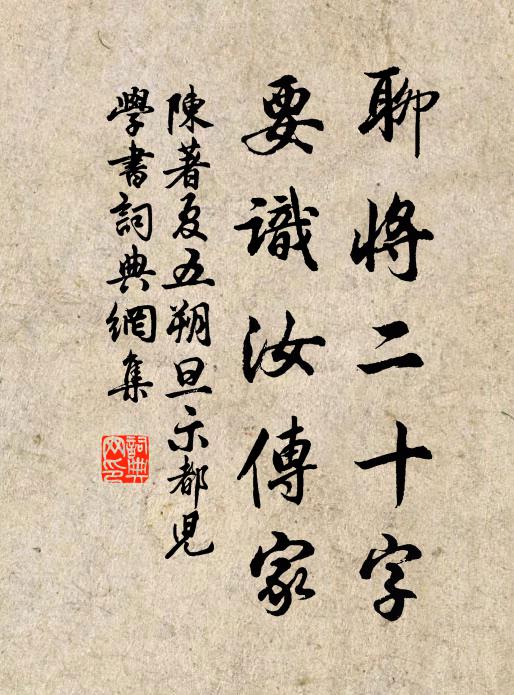 聊將二十字
要識汝傳家
陳著夏五朔旦示都兒
學書詞典網集
詞典網印